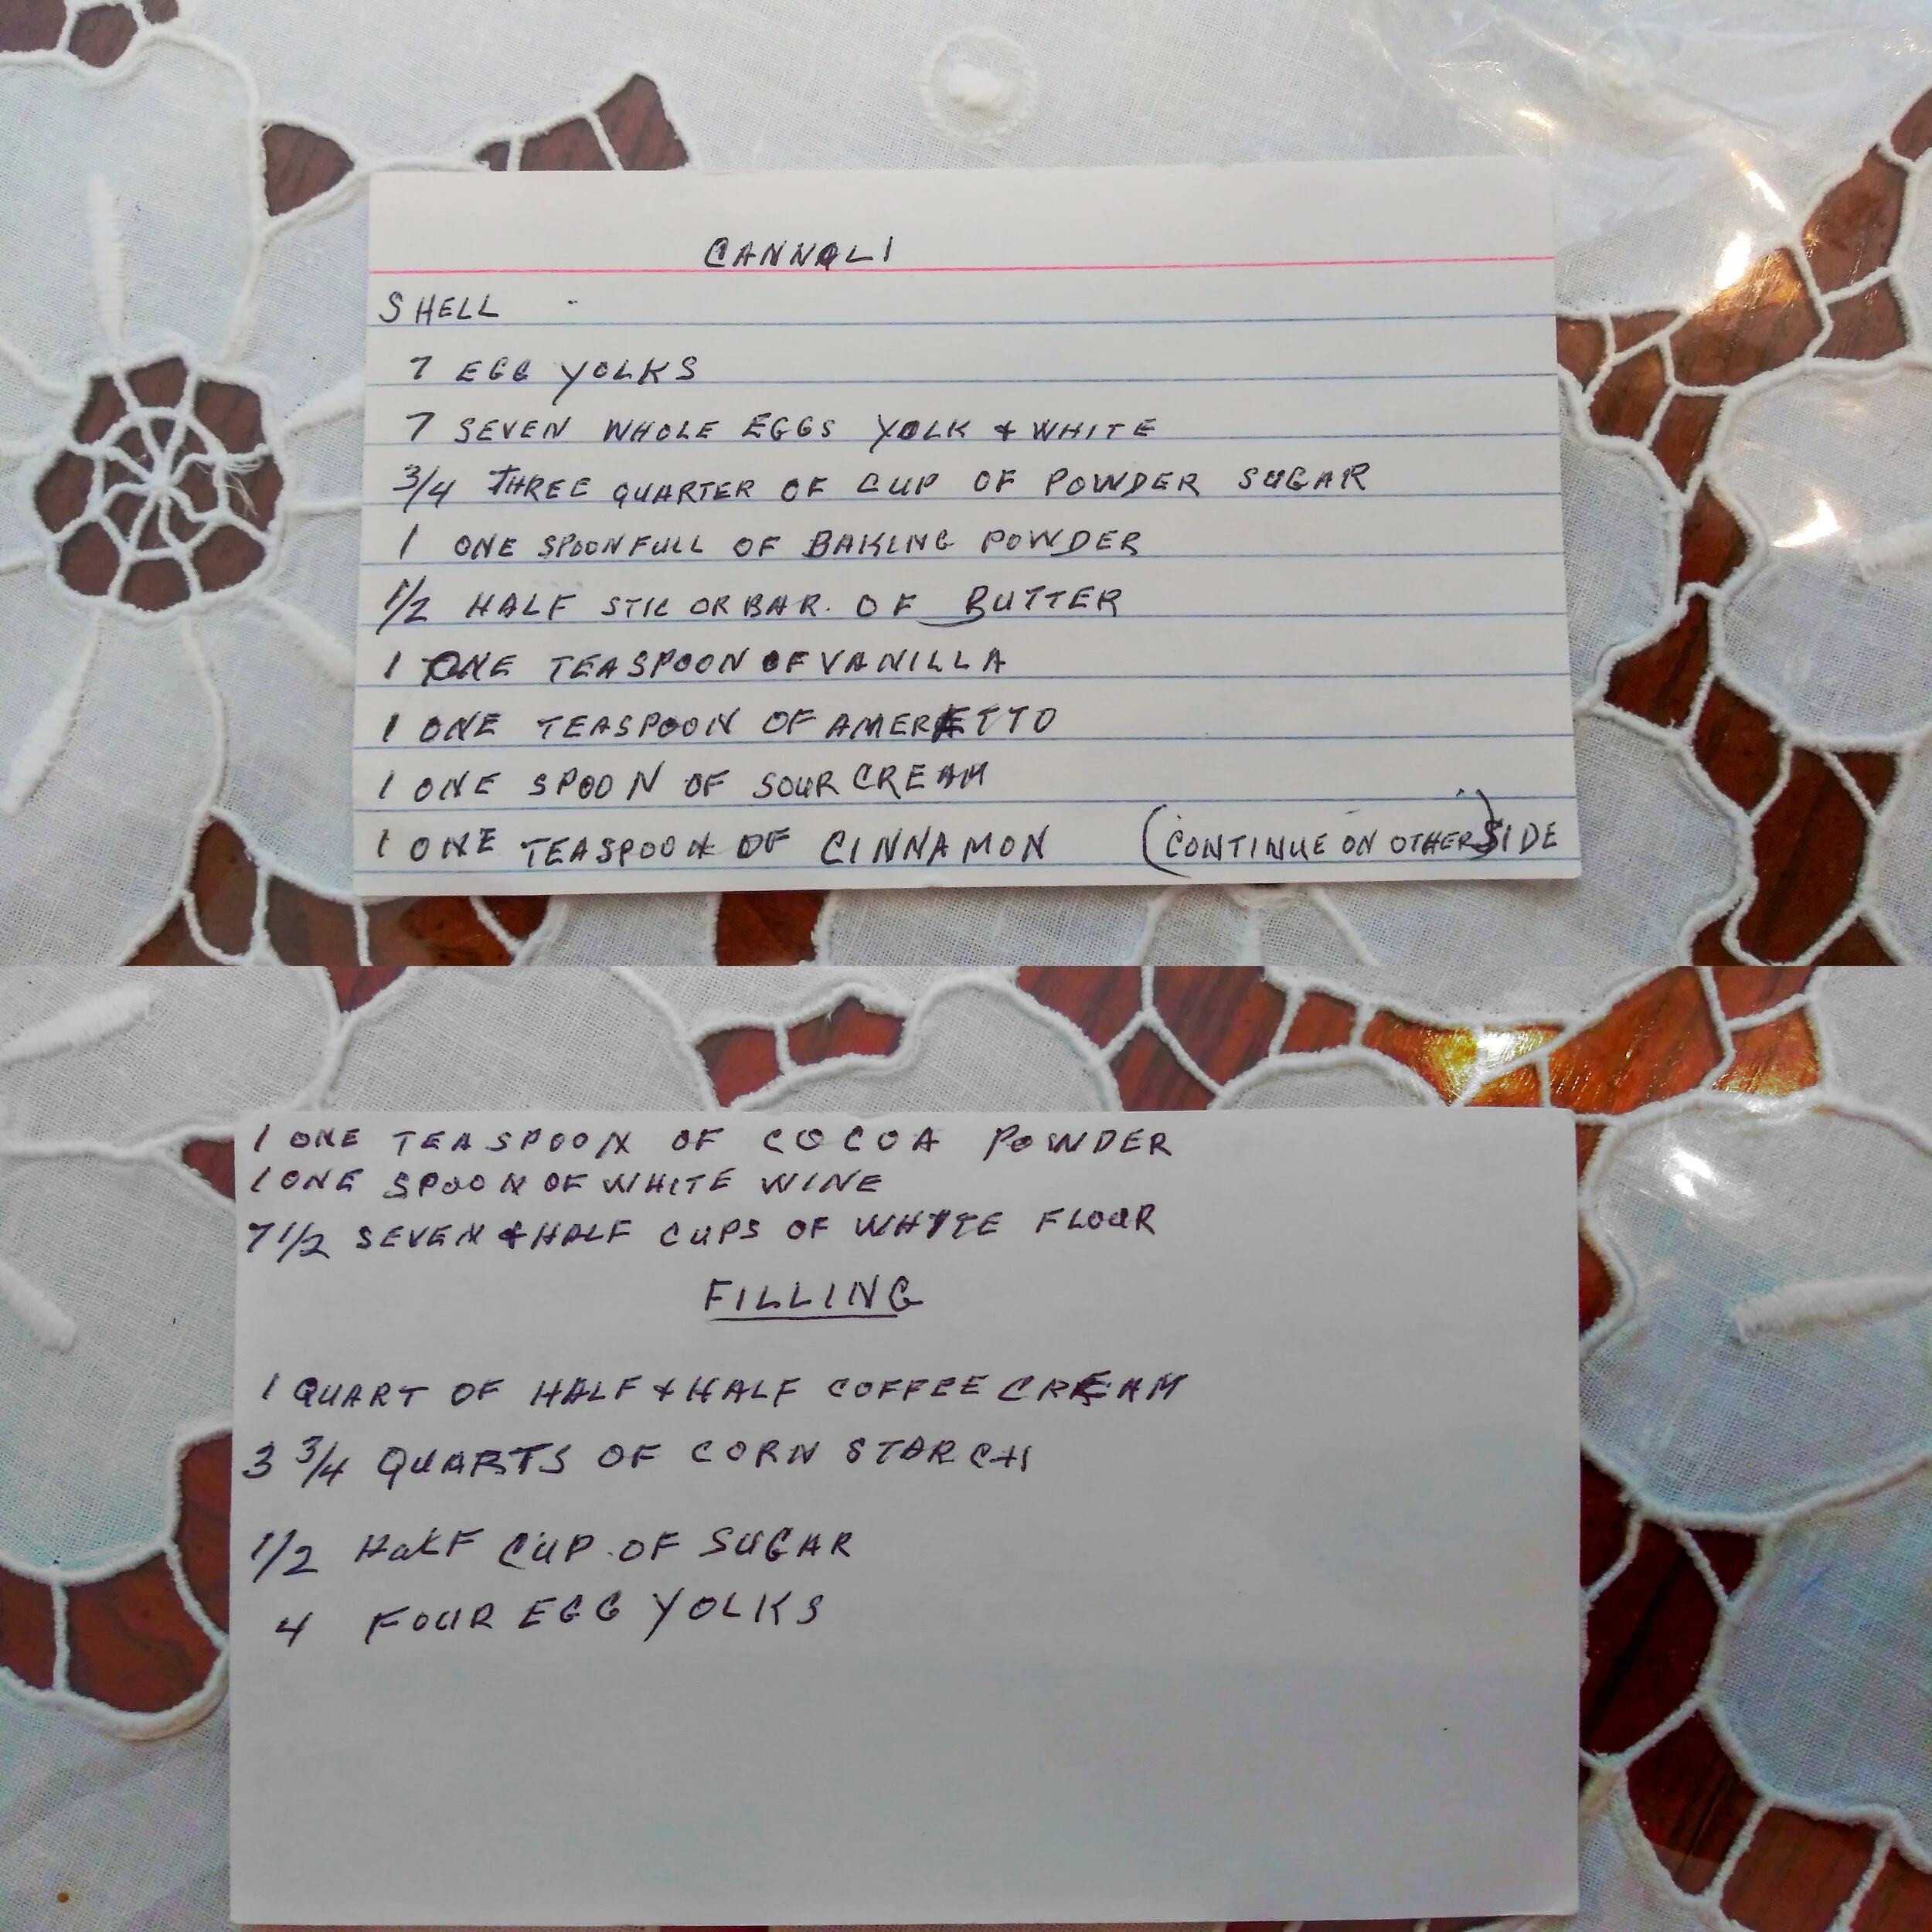 CANNOLI
SHELL
7 EGG YOLKS
7 SEVEN WHOLE EGGS YOLK & WHITE
3/4 THREE QUARTER OF CUP OF POWDER SUGAR
1 ONE SPOONFULL OF BAKING POWDER
1/2 HALF STIC OR BAR. OF BUTTER
1 ONE TEASPOON OF VANILLA
1 ONE TEASPOON OF AMERETTO
1 ONE SPOON OF SOUR CREAM
1 ONE TEASPOON OF CINNAMON (CONTINUE ON OTHER) SIDE
1 ONE TEASPOON OF COCOA POWDER
1 ONE SPOON OF WHITE WINE
7 1/2 SEVEN & HALF CUPS OF WHYTE FLOUR
FILLING
1 QUART OF HALF & HALF COFFEE CREAM
3 3/4 QUARTS OF CORN STARCH
1/2 HALF CUP OF SUGAR
4 FOUR EGG YOLKS